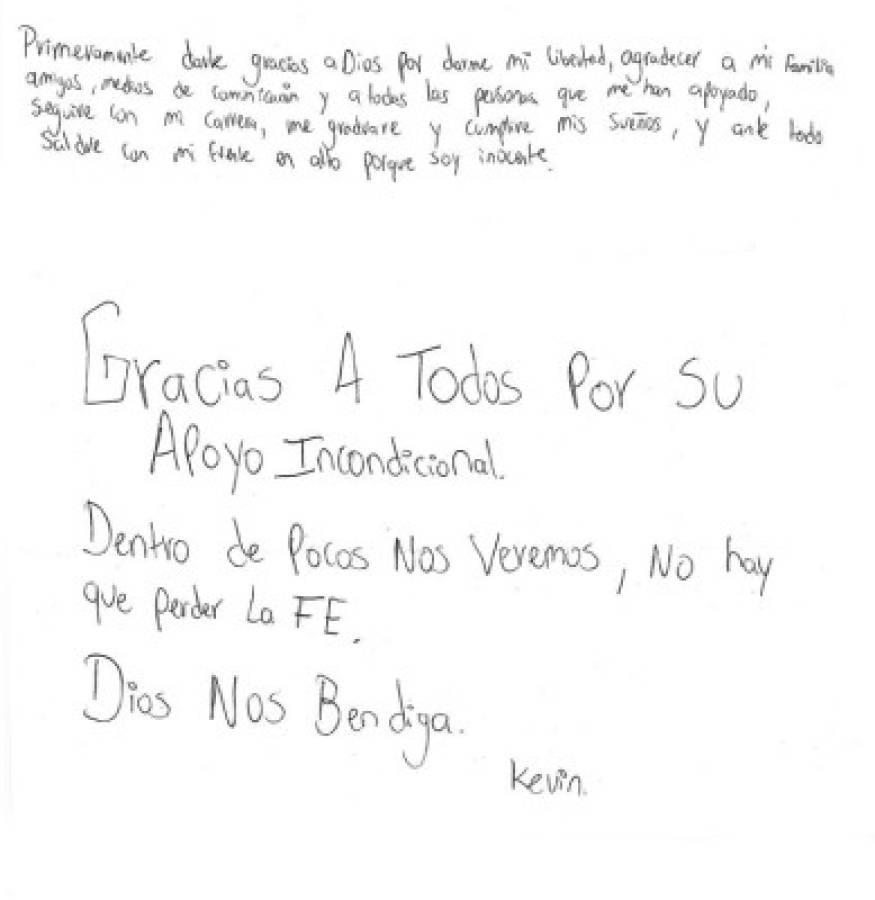 Primeramente darle gracias a Dios por darme mi libertad, agradecer a mi familia
amigos, medios de comnicación y a todas las personas que me han apoyado,
seguire con mi carrera, me graduare y cumplire mis sueños, y ante todo
Saldre con mi frente en alto porque soy inocente.
Gracias A Todos Por Su
Apoyo Incondicional.
Dentro de Pocos Nos Veremos, No hay
que perder La FE.
Dios Nos Bendiga.
Kevin.